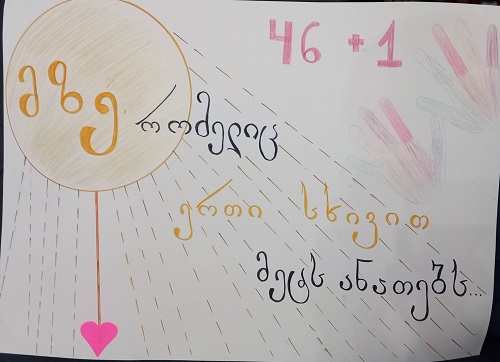 46 + 1
მზე რომელიც
ერთი სხივით
მეტს ანათებს...